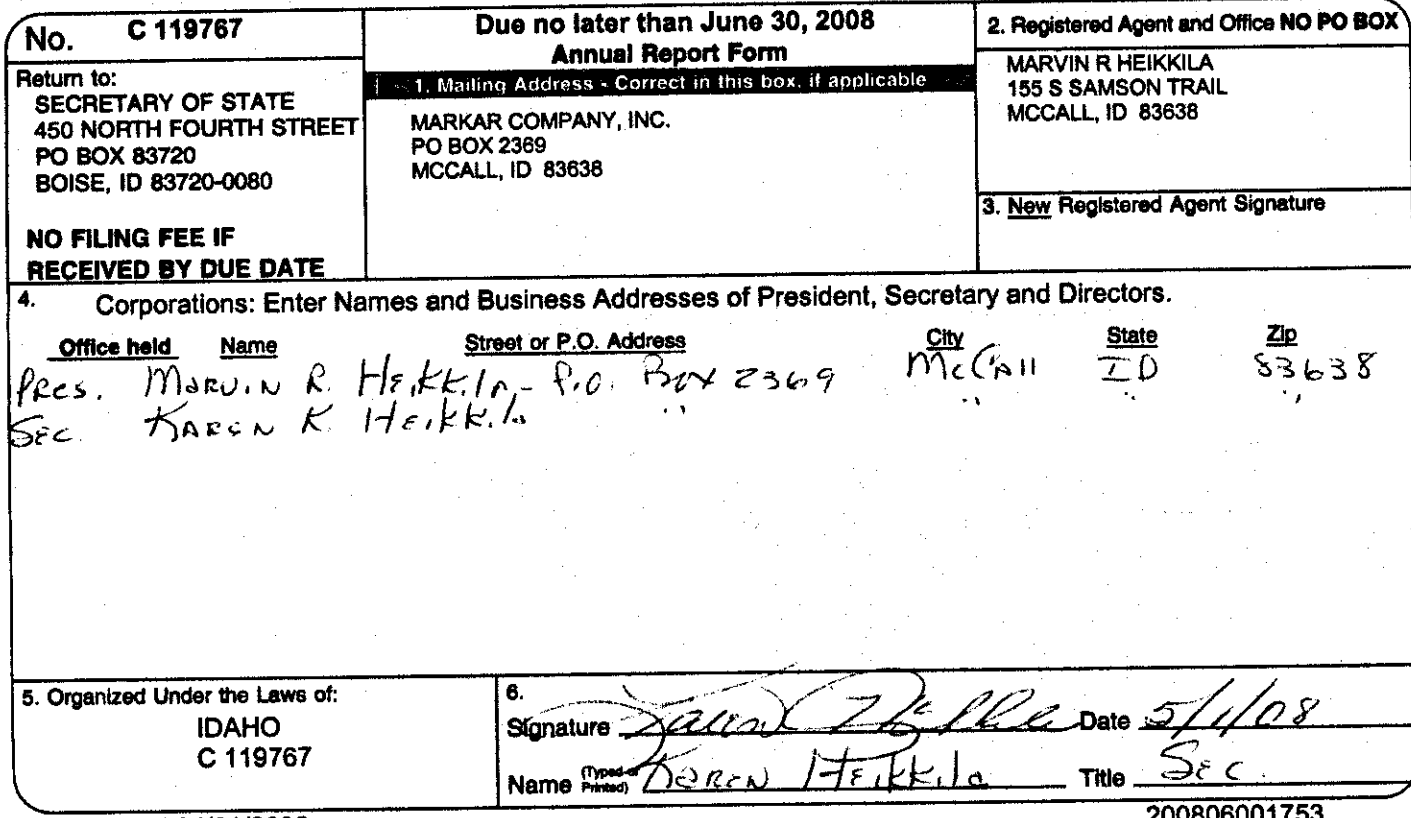 No. C 119767
Return to:
SECRETARY OF STATE
450 NORTH FOURTH STREET
PO BOX 83720
BOISE, ID 83720-0080
NO FILING FEE IF
RECEIVED BY DUE DATE
Due no later than June 30, 2008
Annual Report Form
1. Mailing Address - Correct in this box, if applicable
MARKAR COMPANY, INC.
PO BOX 2369
MCCALL, ID 83638
2. Registered Agent and Office NO PO BOX
MARVIN R HEIKKILA
155 S SAMSON TRAIL
MCCALL, ID 83638
3. New Registered Agent Signature
4. Corporations: Enter Names and Business Addresses of President, Secretary and Directors.
Office held Name Street or P.O. Address City State Zip
Pres. Marvin R. Heikkila - P.O. Box 2369 McCall ID 83638
Sec. Karen K. Heikkila " " " "
5. Organized Under the Laws of:
IDAHO
C 119767
6.
Signature Karen Heikkila Date 5/1/08
Name (Typed or Printed) Karen Heikkila Title Sec.
200806001753